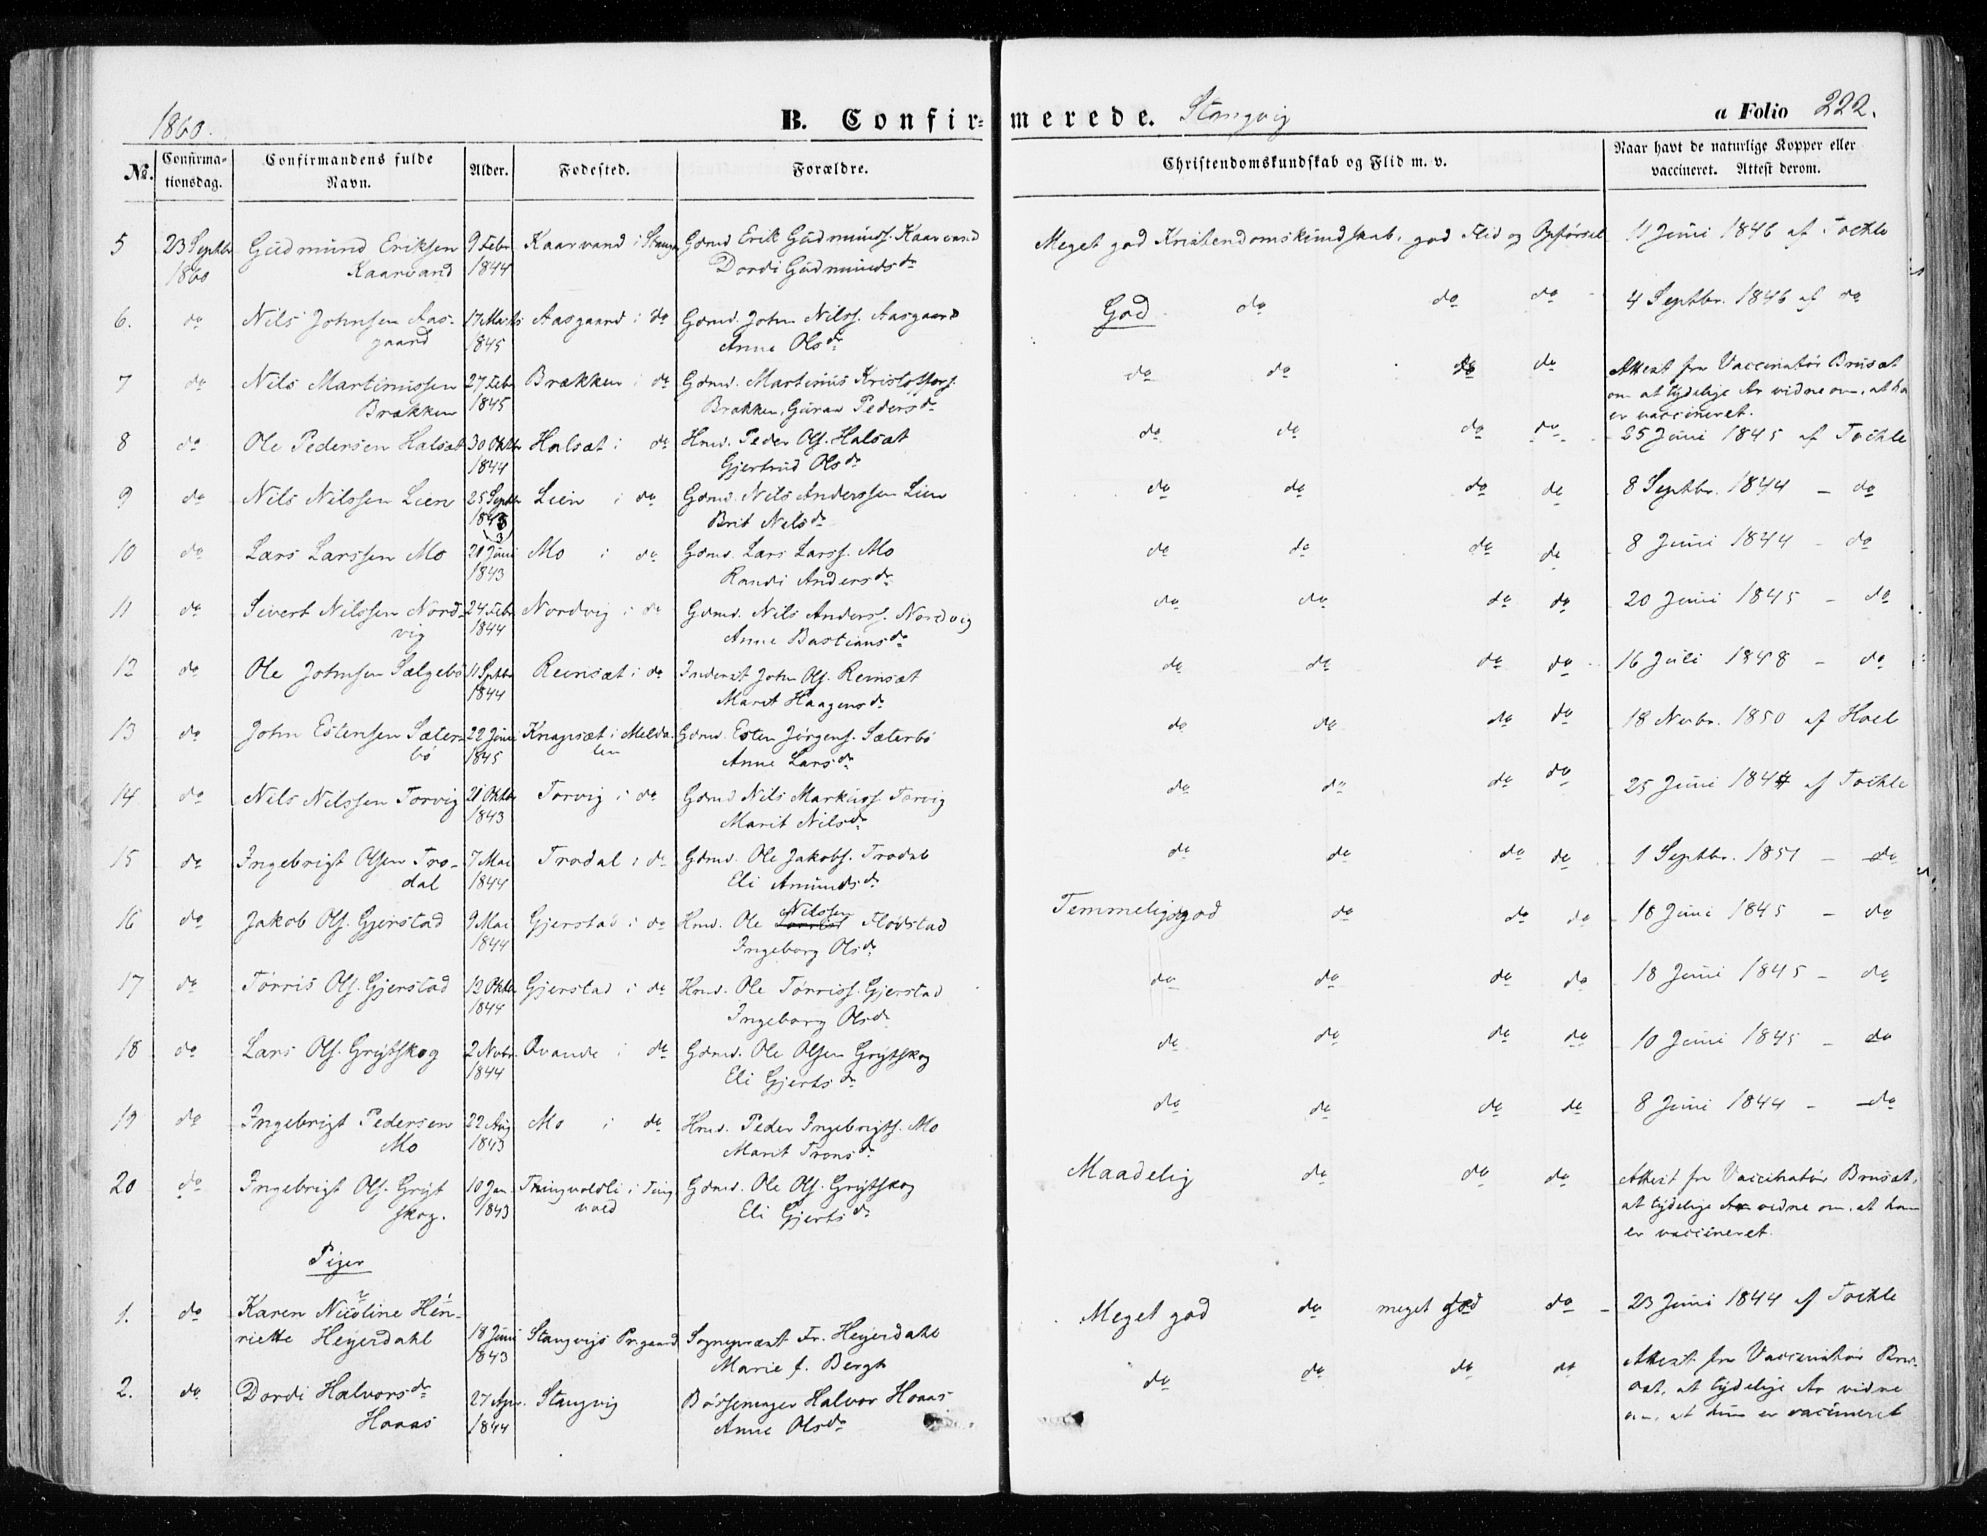 1860.
B. Confirmerede. Stangvig
a Folio 222.
No. Confirmationsdag. Confirmandens fulde Navn. Alder. Fødested. Forældre. Christendomskundskab og Flid m. v. Naar havt de naturlige Kopper eller vaccineret. Attest derom.
5 23 Septbr Gudmund Eriksen 9 Febr Kaarvand i Stangv Gdmd Erik Gudmunds. Kaarvand Meget god Kristendomskundskab, god Flid og Opførsel 11 Juni 1846 af Tochle
1860 Kaarvand 1844 Dordi Gudmundsdr
6. do Nils Johnsen Aas- 17 Marts Aasgaard i do Gdmd. John Nilss. Aasgaard God do do do 4 Septbr. 1846 af do
gaard 1845 Anne Olsdr
7 do Nils Martinussen 27 Febr Brækken i do Gdmd. Martinus Kristoffers. do do do do Attest fra Vaccinatør Brusæt
Brækken 1845 Brækken, Guran Pedersdr om at tydelige Ar vidne om, at han
er vaccineret.
8 do Ole Pedersen Halsæt 30 Oktbr Halsæt i do Hmd. Peder Ols. Halsæt do do do do 25 Juni 1845 af Tochle
1844 Gjertrud Olsdr
9 do Nils Nilssen Lien 25 Septbr Lien i do Gdmd. Nils Anderssen Lien do do do do 8 Septbr. 1844 - do
1843 Brit Nilsdr
(3)
10 do Lars Larssen Mo 21 Juni Mo i do Gdmd. Lars Larss. Mo do do do do 8 Juni 1844 - do
1843 Randi Andersdr
11 do Sivert Nilssen Nord- 24 Febr Nordvig i do Gdmd. Nils Anderss. Nordvig do do do do 20 Juni 1845 - do
vig 1844 Anne Bastiansdr
12 do Ole Johnsen Sælgebø 11 Septbr Reinsæt i do Inderst John Ols. Reinsæt do do do do 16 Juli 1848 - do
1844 Marit Haagensdr
13 do John Estensen Sæter- 22 Juni Knapsæt i Melda- Gdmd. Esten Jørgens. Sæterbø do do do do 18 Novbr. 1850 af Hoel
bø 1845 len Anne Larsdr
14 do Nils Nilssen Torvig 21 Oktbr Torvig i do Gdmd Nils Markuss. Torvig do do do do 25 Juni 1844 af Tochle
1843 Marit Nilsdr
15 do Ingebrigt Olsen Tro- 7 Mai Trodal i do Gdmd. Ole Jakobs. Trodal do do do do 1 Septbr. 1851 - do
dal 1844 Eli Amundsdr
16 do Jakob Ols. Gjerstad 9 Mai Gjerstad i do Hmd. Ole Nilssen Flødstad Temmelig god do do do 18 Juni 1845 - do
1844 Ingeborg Olsdr
17 do Tørris Ols. Gjerstad 12 Oktbr Gjerstad i do Hmd. Ole Tørriss. Gjerstad do do do do 18 Juni 1845 - do
1844 Ingeborg Olsdr
18 do Lars Ols. Grytskog 2 Novbr. Qvande i do Gdmd. Ole Olsen Grytskog do do do do 10 Juni 1845 - do
1844 Eli Gjertsdr
19 do Ingebrigt Pedersen 22 Aug Mo i do Hmd. Peder Ingebrigts. Mo do do do do 8 Juni 1844 - do
Mo 1843 Marit Tronsdr
20 do Ingebrigt Ols. Gryt 10 Jan. Tingvoldli i Ting- Gdmd. Ole Ols. Grytskog Maadelig do do do Attest fra Vaccinatør Brusæt,
skog. 1843 vold Eli Gjertsdr at tydelige Ar vidne om, at han
er vaccineret.
Piger
1. do Karen Nicoline Hen- Meget god do meget god do - 23 Juni 1844 af Tochle
riette Heyerdahl 18 Juni Stangvigs Prgaard Sognepræst Fr. Heyerdahl
1843 Marie f. Bergh
2. do Dordi Halvorsdr 27 Apr. Stangvig Bøssemager Halvor Hoaas do do do do Attest fra Vaccinatør Bru-
Hoaas 1844 Anne Olsdr sæt, at tydelige Ar vidne
om, at hun er vaccineret